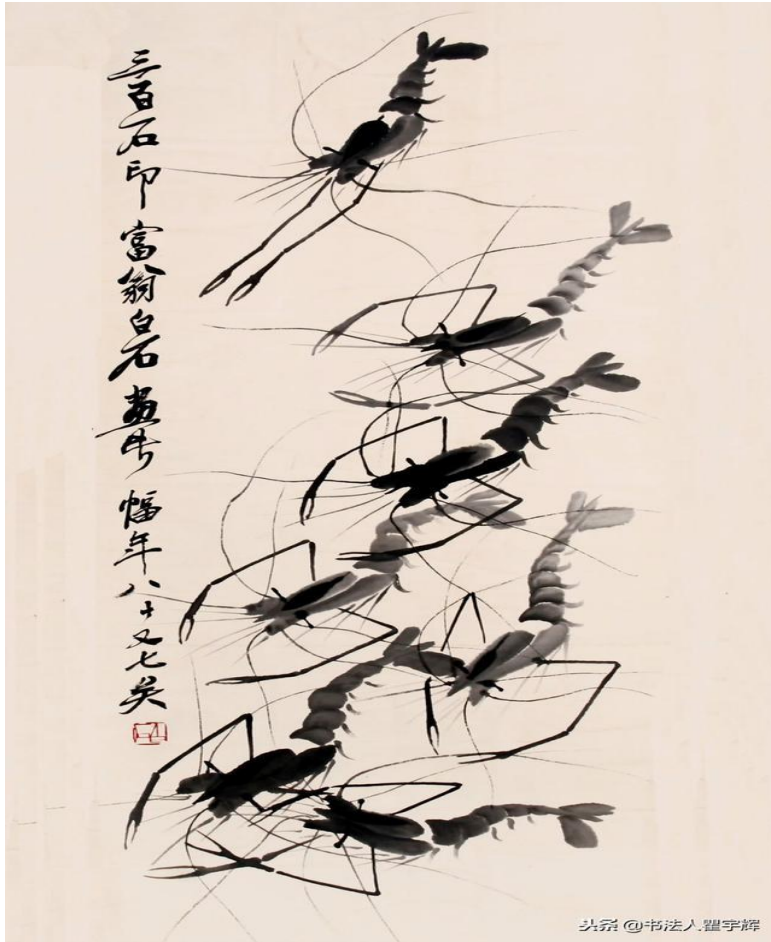 三百石印富翁白石画此幅年八十又七矣
头条 @书法人瞿宇辉